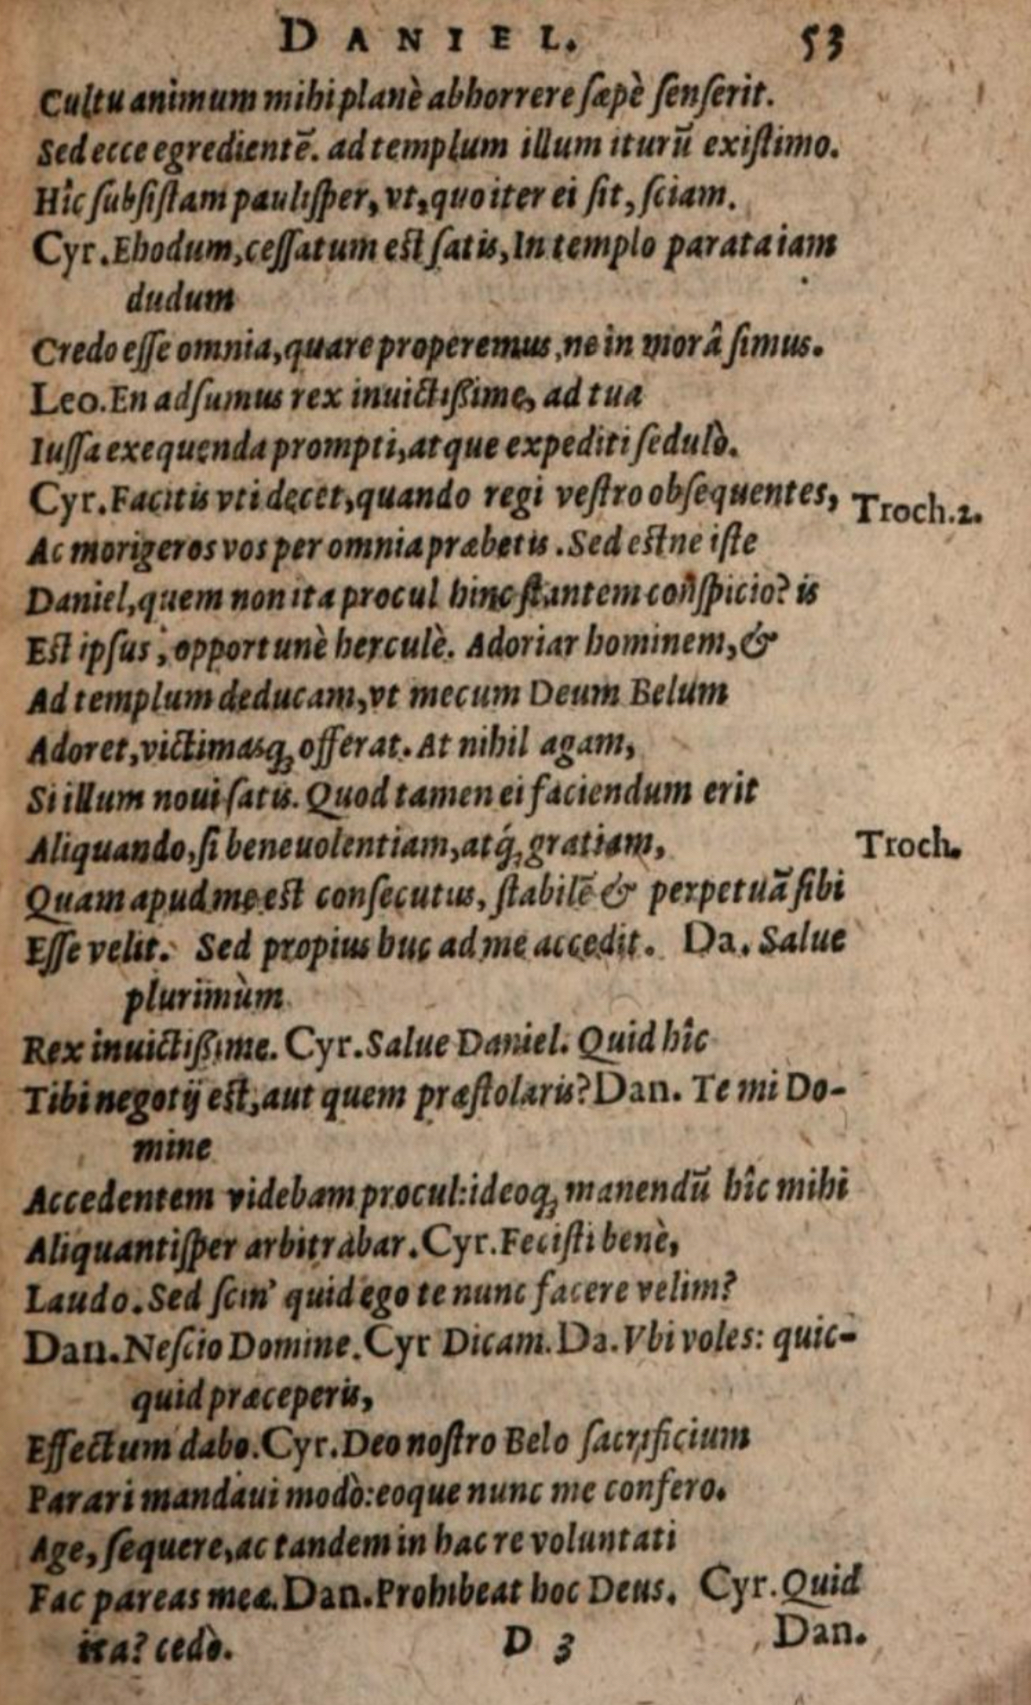 DANIEL. 53
Cultu animum mihi planè abhorrere sæpè senserit.
Sed ecce egredientē. ad templum illum iturū existimo.
Hîc subsistam paulisper, vt, quo iter ei sit, sciam.
Cyr. Ehodum, cessatum est satis, In templo parata iam
dudum
Credo esse omnia, quare properemus, ne in morâ simus.
Leo. En adsumus rex inuictißime, ad tua
Iussa exequenda prompti, atque expediti sedulò.
Cyr. Facitis vti decet, quando regi vestro obsequentes, Troch. 2.
Ac morigeros vos per omnia præbetis. Sed estne iste
Daniel, quem non ita procul hinc stantem conspicio? is
Est ipsus, opportunè herculè. Adoriar hominem, &
Ad templum deducam, vt mecum Deum Belum
Adoret, victimasq́; offerat. At nihil agam,
Si illum noui satis. Quod tamen ei faciendum erit
Aliquando, si beneuolentiam, atq́; gratiam, Troch.
Quam apud me est consecutus, stabilē & perpetuā sibi
Esse velit. Sed propius huc ad me accedit. Da. Salue
plurimùm
Rex inuictißime. Cyr. Salue Daniel. Quid hîc
Tibi negotij est, aut quem præstolaris? Dan. Te mi Do-
mine
Accedentem videbam procul: ideoq; manendū hîc mihi
Aliquantisper arbitrabar. Cyr. Fecisti benè,
Laudo. Sed scin' quid ego te nunc facere velim?
Dan. Nescio Domine. Cyr Dicam. Da. Vbi voles: quic-
quid præceperis,
Effectum dabo. Cyr. Deo nostro Belo sacrificium
Parari mandaui modò: eoque nunc me confero.
Age, sequere, ac tandem in hac re voluntati
Fac pareas meæ. Dan. Prohibeat hoc Deus. Cyr. Quid
ita? cedò. D 3 Dan.